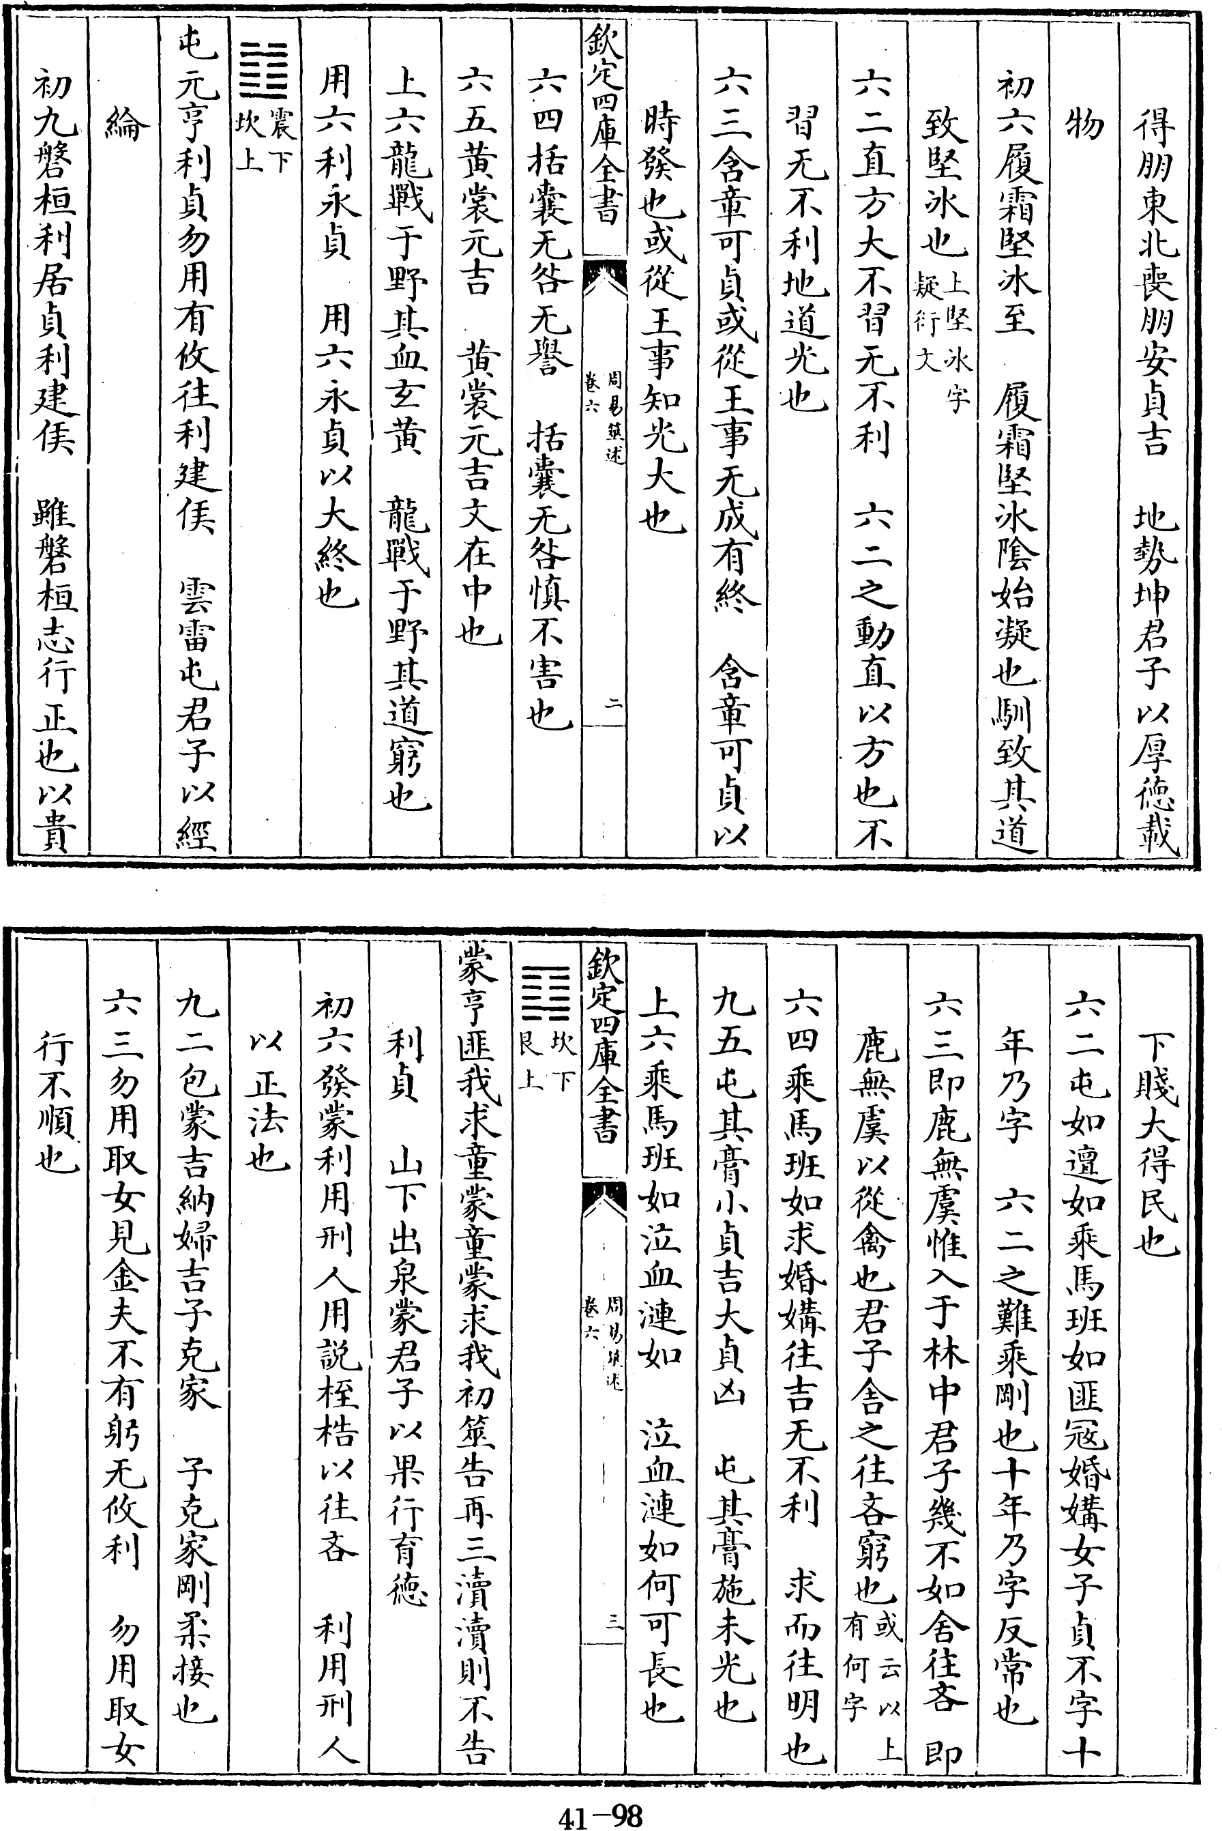 得朋東北喪朋安貞吉　地勢坤君子以厚德載
物
初六履霜堅冰至　履霜堅冰陰始凝也馴致其道
致堅冰也上堅冰字疑衍文
六二直方大不習无不利　六二之動直以方也不
習无不利地道光也
六三含章可貞或從王事无成有終　含章可貞以
時發也或從王事知光大也
欽定四庫全書　周易筮述卷六　二
六四括囊无咎无譽　括囊无咎慎不害也
六五黄裳元吉　黄裳元吉文在中也
上六龍戰于野其血玄黄　龍戰于野其道窮也
用六利永貞　用六永貞以大終也
䷂震下坎上
屯元亨利貞勿用有攸往利建侯　雲雷屯君子以經
綸
初九磐桓利居貞利建侯　雖磐桓志行正也以貴
下賤大得民也
六二屯如邅如乘馬班如匪冦婚媾女子貞不字十
年乃字　六二之難乘剛也十年乃字反常也
六三即鹿無虞惟入于林中君子幾不如舍往吝　即
鹿無虞以從禽也君子舍之往吝窮也或云以上有何字
六四乘馬班如求婚媾往吉无不利　求而往明也
九五屯其膏小貞吉大貞凶　屯其膏施未光也
上六乘馬班如泣血漣如　泣血漣如何可長也
欽定四庫全書　周易筮述卷六　三
䷃坎下艮上
蒙亨匪我求童蒙童蒙求我初筮告再三瀆瀆則不告
利貞　山下出泉蒙君子以果行育德
初六發蒙利用刑人用說桎梏以往吝　利用刑人
以正法也
九二包蒙吉納婦吉子克家　子克家剛柔接也
六三勿用取女見金夫不有躬无攸利　勿用取女
行不順也
41-98